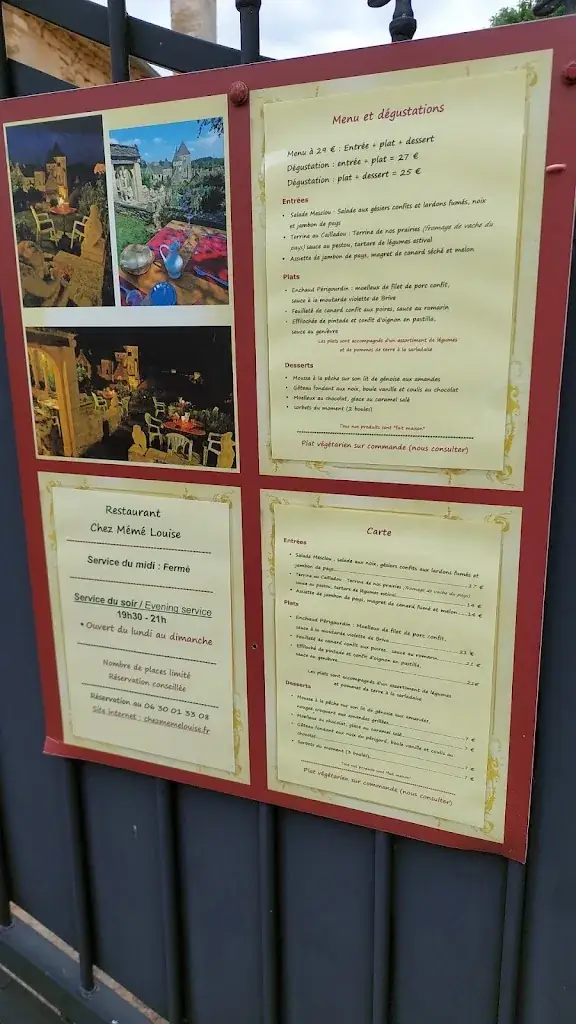 Menu et dégustations
Menu à 29 € : Entrée + plat + dessert
Dégustation : entrée + plat = 27 €
Dégustation : plat + dessert = 25 €
Entrées
• Salade Mesclou : Salade aux gésiers confits et lardons fumés, noix
et jambon de pays
• Terrine au Cailladou : Terrine de nos prairies (fromage de vache du
pays) sauce au pestou, tartare de légumes estival
• Assiette de jambon de pays, magret de canard séché et melon
Plats
• Enchaud Périgourdin : moelleux de filet de porc confit,
sauce à la moutarde violette de Brive
• Feuilleté de canard confit aux poires, sauce au romarin
• Effilochée de pintade et confit d'oignon en pastilla,
sauce au genièvre
Les plats sont accompagnés d'un assortiment de légumes
et de pommes de terre à la sarladaise
Desserts
• Mousse à la pêche sur son lit de génoise aux amandes
• Gâteau fondant aux noix, boule vanille et coulis au chocolat
• Moelleux au chocolat, glace au caramel salé
• Sorbets du moment (2 boules)
Tous nos produits sont "fait maison"
Plat végétarien sur commande (nous consulter)
Restaurant
Chez Mémé Louise
Service du midi : Fermé
Service du soir / Evening service
19h30 - 21h
• Ouvert du lundi au dimanche
Nombre de places limité
Réservation conseillée
Réservation au 06 30 01 33 08
Site internet : chezmemelouise.fr
Carte
Entrées
• Salade Mesclou : salade aux noix, gésiers confits aux lardons fumés et
jambon de pays 17 €
• Terrine au Cailladou : Terrine de nos prairies (fromage de vache du pays)
sauce au pestou, tartare de légumes estival 14 €
• Assiette de jambon de pays, magret de canard fumé et melon 14 €
Plats
• Enchaud Périgourdin : Moelleux de filet de porc confit,
sauce à la moutarde violette de Brive
• Feuilleté de canard confit aux poires, sauce au romarin 21 €
• Effiloché de pintade et confit d'oignon en pastilla,
sauce au genièvre 21€
Les plats sont accompagnés d'un assortiment de légumes
et pommes de terre à la sarladaise
Desserts
• Mousse à la pêche sur son lit de
nougat croquant aux amandes grillées 7 €
• Moelleux au chocolat, glace au caramel salé 7 €
• Gâteau fondant aux noix du périgord, boule vanille et coulis au
chocolat 7 €
• Sorbets du moment (3 boules) 7 €
Tous nos produits sont "fait maison"
Plat végétarien sur commande (nous consulter)